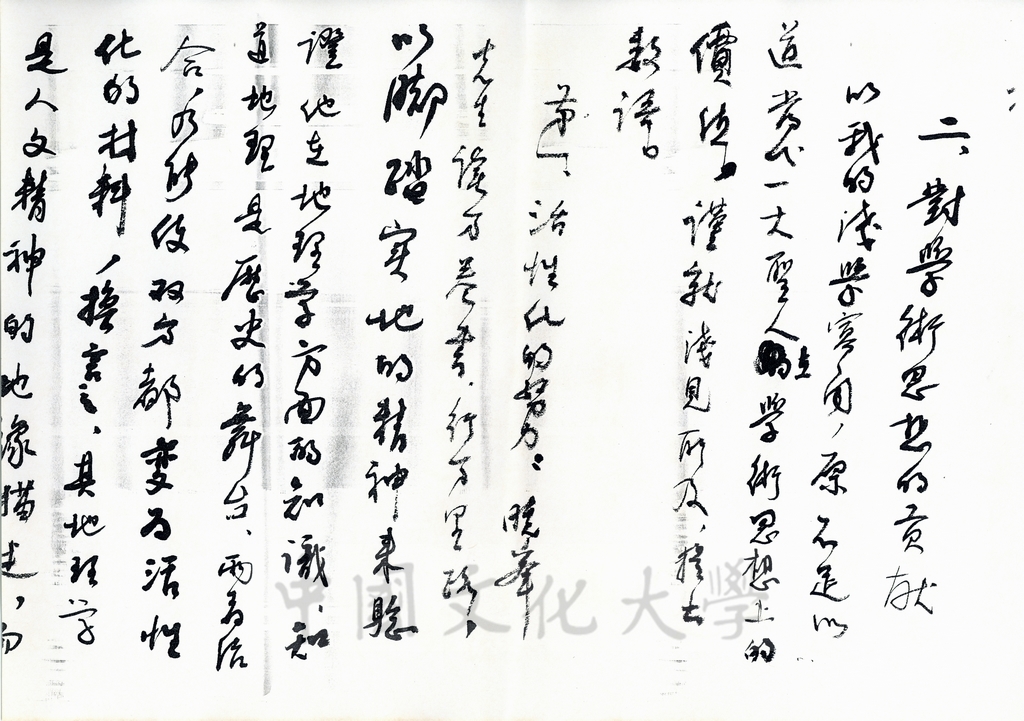 二、對學術思想的貢献
以我的淺學寡聞，原不足以
道當代一大聖人在學術思想上的
價值，謹就淺見所及，擅出
数語。
第一、活性化的努力：曉峯
先生讀万卷書，行万里路，
以脚踏实地的精神来驗
證他在地理学方面的知識、知
道地理是歷史的舞台、两者治
合，乃能使双方都变為活性
化的材料，換言之、其地理学
是人文精神的地緣描述，而
中國文化大學